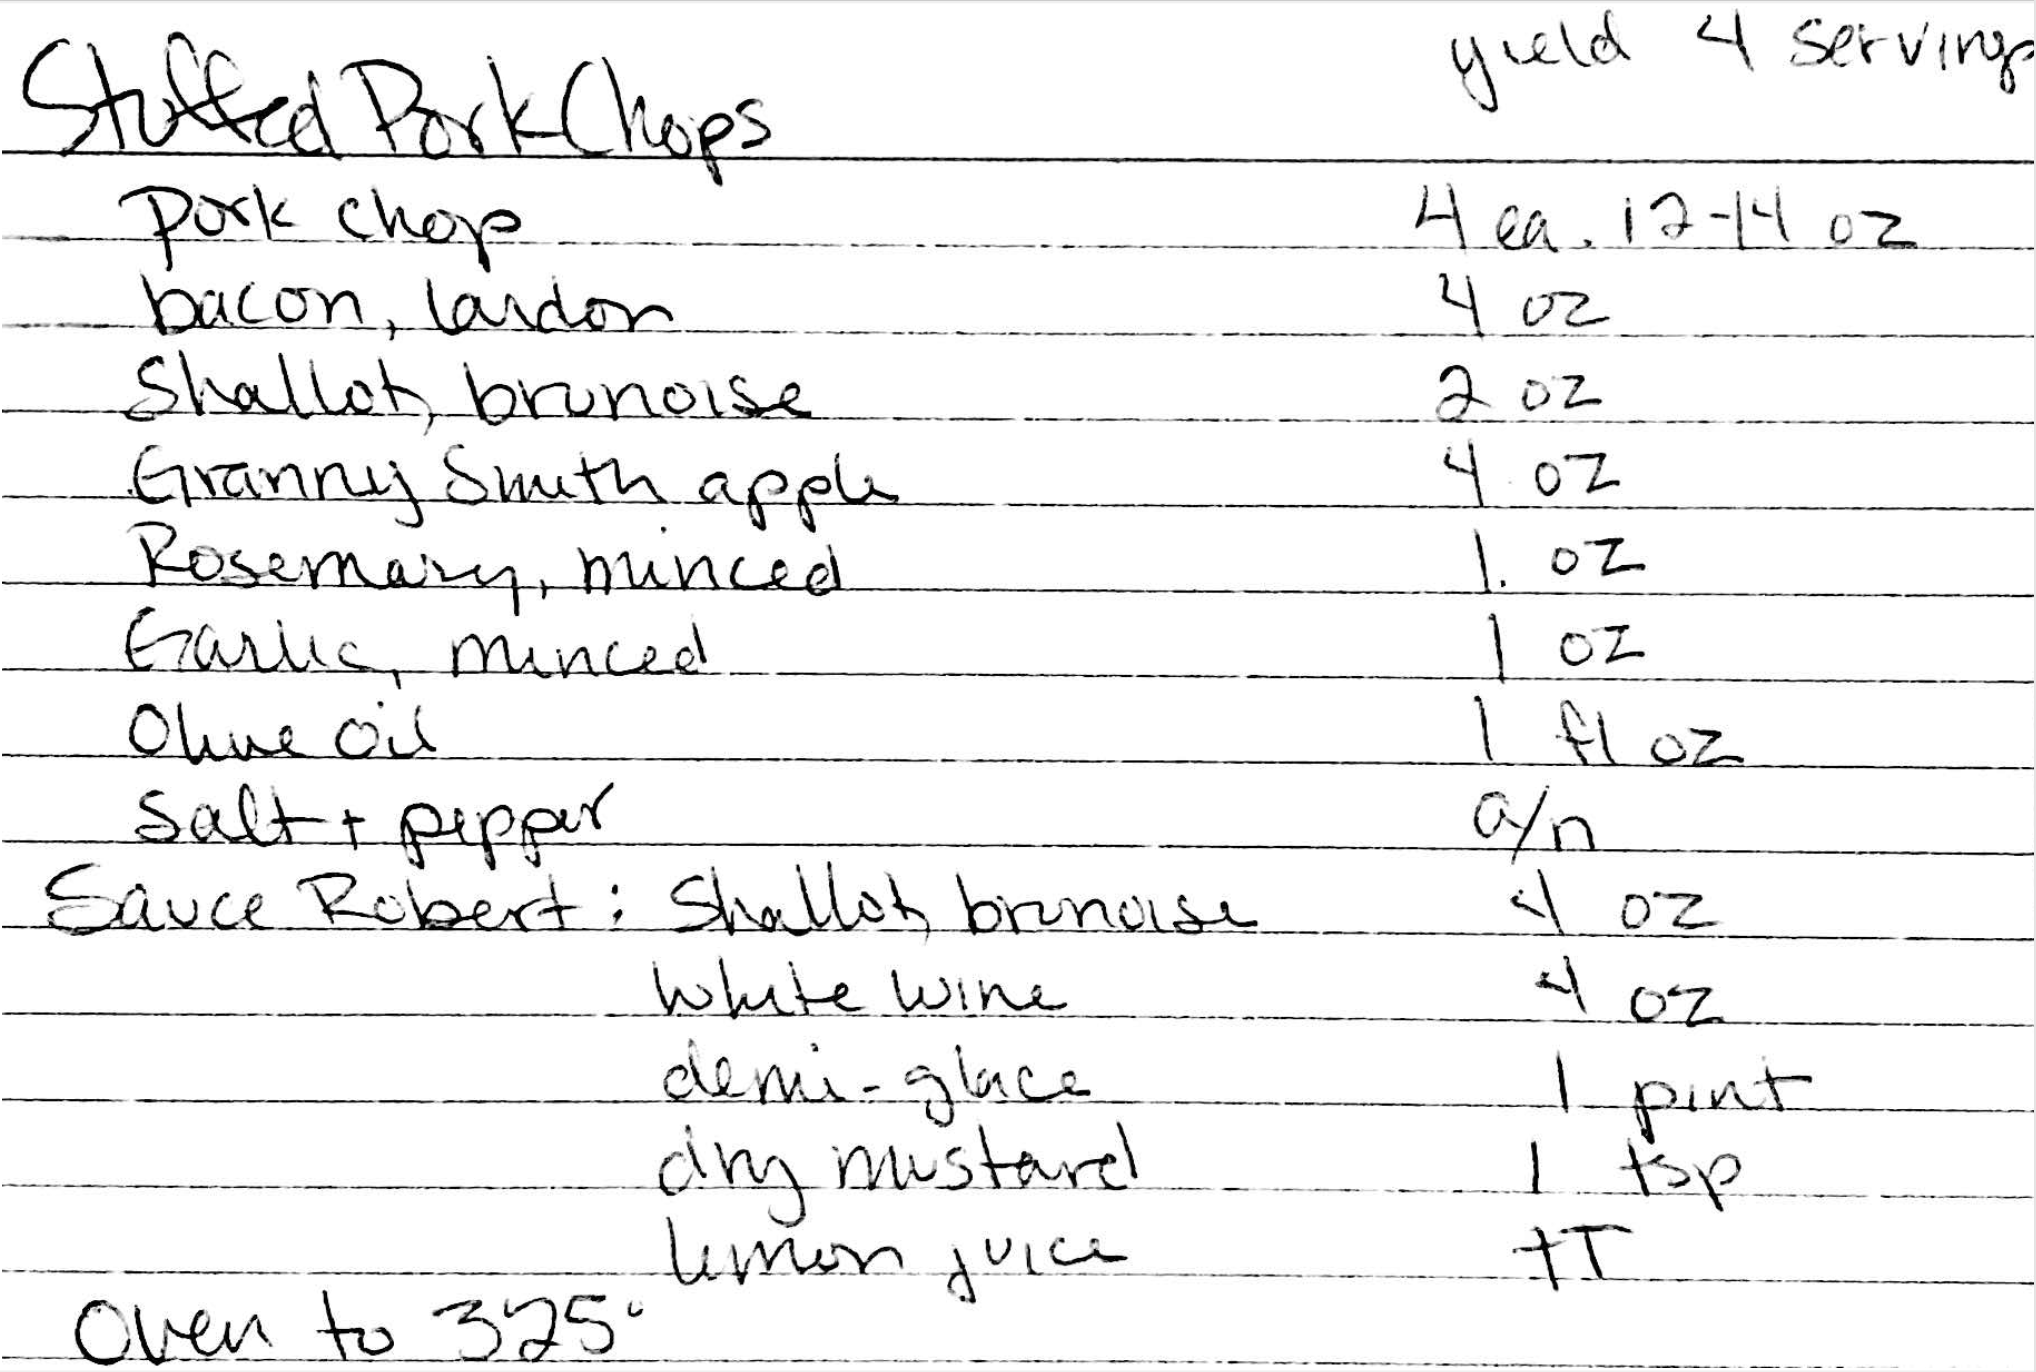 Stuffed Pork Chops yield 4 servings
pork chop 4 ea. 12-14 oz
bacon, lardon 4 oz
Shallot, brunoise 2 oz
Granny Smith apple 4 oz
Rosemary, minced 1 oz
Garlic, minced 1 oz
Olive oil 1 fl oz
Salt + pepper a/n
Sauce Robert: Shallot, brunoise 4 oz
white wine 4 oz
demi-glace 1 pint
dry mustard 1 tsp
lemon juice tT
Oven to 325°